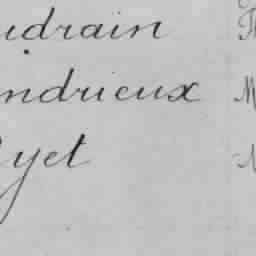 udrain
ndrieux
yet